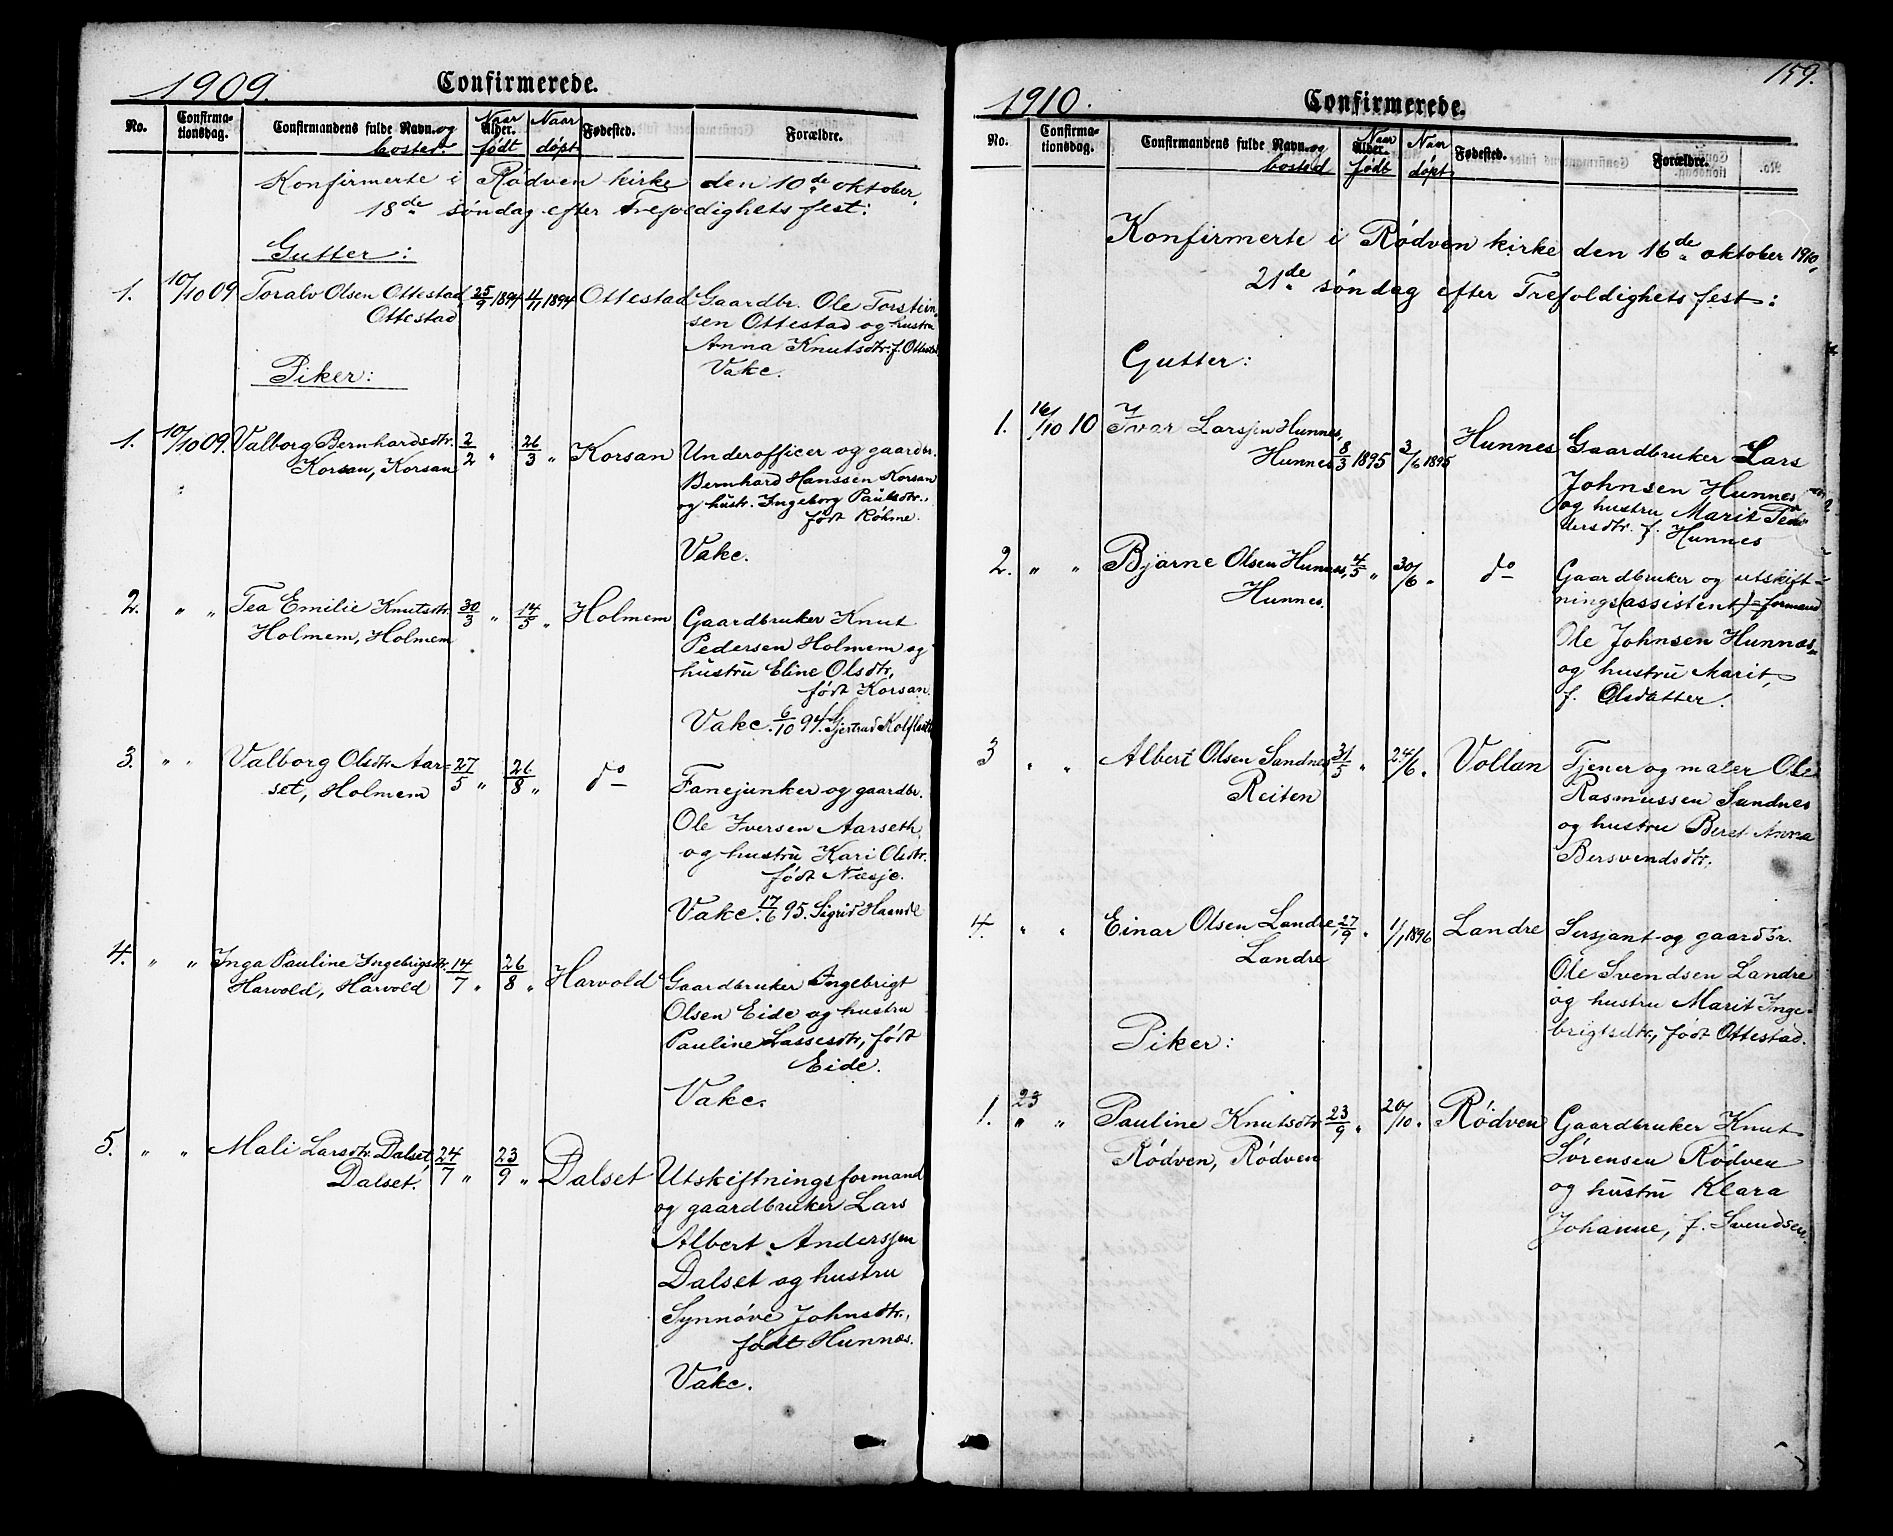 1909. Confirmerede.
No. Confirma-tionsdag. Confirmandens fulde Navn. og bosted. Alder. Naar født Naar døpt Fødested. Forældre.
Konfirmerte i Rødven kirke den 10de oktober,
18de søndag efter trefoldighetsfest:
Gutter:
1. 10/10 09 Toralv Olsen Ottestad 25/9 1894 4/11 1894 Ottestad Gaardbr. Ole Torstein-
Ottestad sen Ottestad og hustru
Anna Knutsdtr. f. Ottestad
Vakc.
Piker:
1. 10/10 09. Valborg Bernhardsdtr. 2/2 " 26/3 " Korsan Underofficer og gaardbr.
Korsan, Korsan Bernhard Hanssen Korsan
og hustr. Ingeborg Paulsdtr.,
født Røhme.
Vakc.
2. " " Tea Emilie Knutsdtr. 30/3 " 14/5 " Holmem Gaardbruker Knut
Holmem, Holmem Pedersen Holmem og
hustru Eline Olsdtr,
født Korsan.
Vakc. 6/10 94. Gjertrud Kolflaath
3. " " Valborg Olsdtr. Aar- 27/5 " 26/8 " do Fanejunker og gaardbr.
set, Holmem Ole Iversen Aarseth
og hustru Kari Olsdtr.
født Næsje.
Vakc. 17/6 95. Sigrid Haande
4. " " Inga Pauline Ingebrigsdtr. 14/7 " 26/8 " Harvold Gaardbruker Ingebrigt
Harvold, Harvold Olsen Eide og hustru
Pauline Lassesdtr, født
Eide.
Vakc.
5. " " Mali Larsdtr. Dalset, 24/7 " 23/9 " Dalset Utskiftningsformand
Dalset. og gaardbruker Lars
Albert Anderssen
Dalset og hustru
Synnøve Johnsdtr.,
født Hunnæs.
Vakc.
159.
1910. Confirmerede.
No. Confirma-tionsdag. Confirmandens fulde Navn. og bosted Alder. Naar født Naar døpt Fødested. Forældre.
Konfirmerte i Rødven kirke den 16de oktober 1910,
21de søndag efter Trefoldighetsfest:
Gutter:
1. 16/10 10 Ivar Larssen Hunnes, 8/3 1895 3/6 1895 Hunnes Gaardbruker Lars
Hunnes Johnsen Hunnes
og hustru Marit Ped-
dersdtr. f. Hunnes
2. " " Bjarne Olsen Hunnes, 4/5 " 30/6 " do Gaardbruker og utskift-
Hunnes. nings(assistent)=formand
Ole Johnsen Hunnæs
og hustru Marit,
f. Olsdatter.
3 " " Albert Olsen Sandnes 31/5 " 24/6 " Vollan Tjener og maler Ole
Reiten Rasmussen Sandnes
og hustru Beret Anna
Bersvendsdtr.
4. " " Einar Olsen Landre, 27/9 " 1/1 1896 Landre Sersjant og gaardbr.
Landre Ole Svendsen Landre
og hustru Marit Inge-
brigtsdtr., født Ottestad.
Piker:
1. 23 " " Pauline Knutsdtr. 23/9 " 20/10 " Rødven Gaardbruker Knut
Rødven, Rødven Sørensen Rødven
og hustru Klara
Johanne, f. Svendsen.